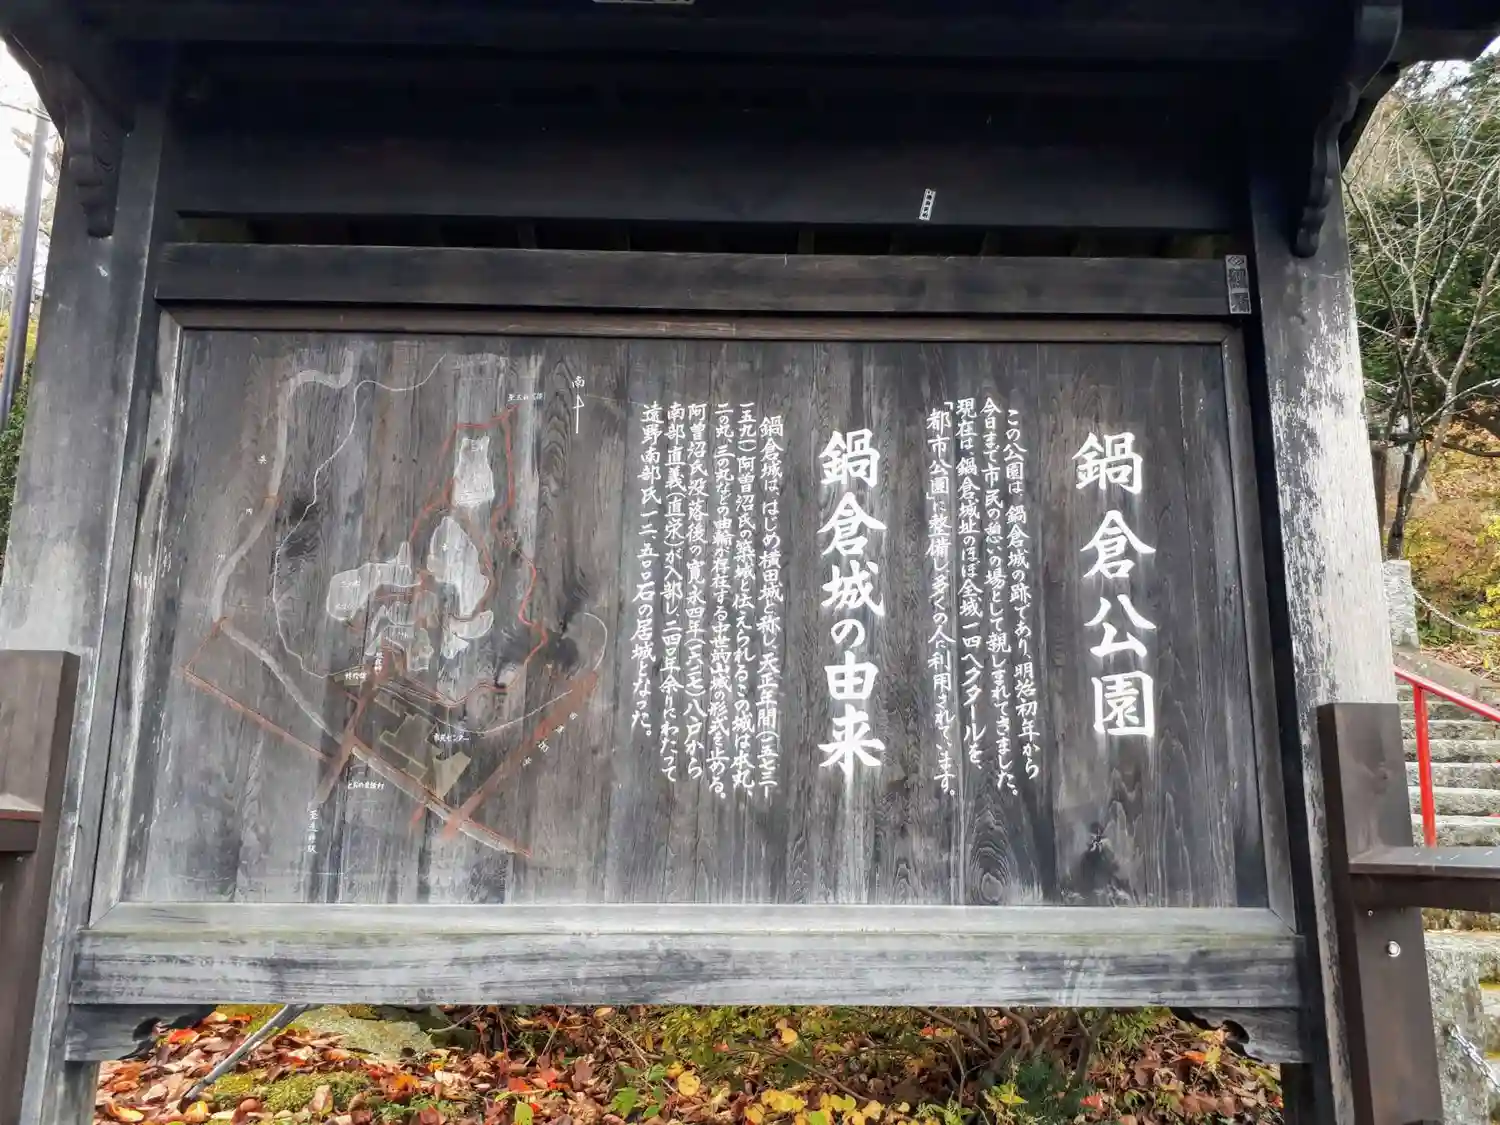 鍋倉公園
この公園は、鍋倉城の跡であり、明治初年から
今日まで市民の憩いの場として親しまれてきました。
現在は、鍋倉城址のほぼ全域一四ヘクタールを、
「都市公園」に整備し多くの人に利用されています。
鍋倉城の由来
鍋倉城は、はじめ横田城と称し、天正年間(一五七三―
一五九一)阿曽沼氏の築城と伝えられるこの城は本丸、
二の丸、三の丸などの曲輪が存在する中世的山城の形式を止める。
阿曽沼氏没落後の寛永四年(一六二七)八戸から
南部直義(直栄)が入部し、二四〇年余りにわたって
遠野南部氏一二、五〇〇石の居城となった。
南
市民センター
とおの昔話村
至遠野駅